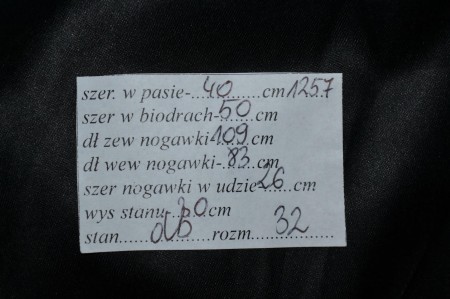 szer. w pasie-...40.......cm 1257
szer w biodrach-50...cm
dł zew nogawki 109 cm
dł wew nogawki-.83.cm
szer nogawki w udzie 26......cm
wys stanu...20cm
stan......db........rozm.....32..........